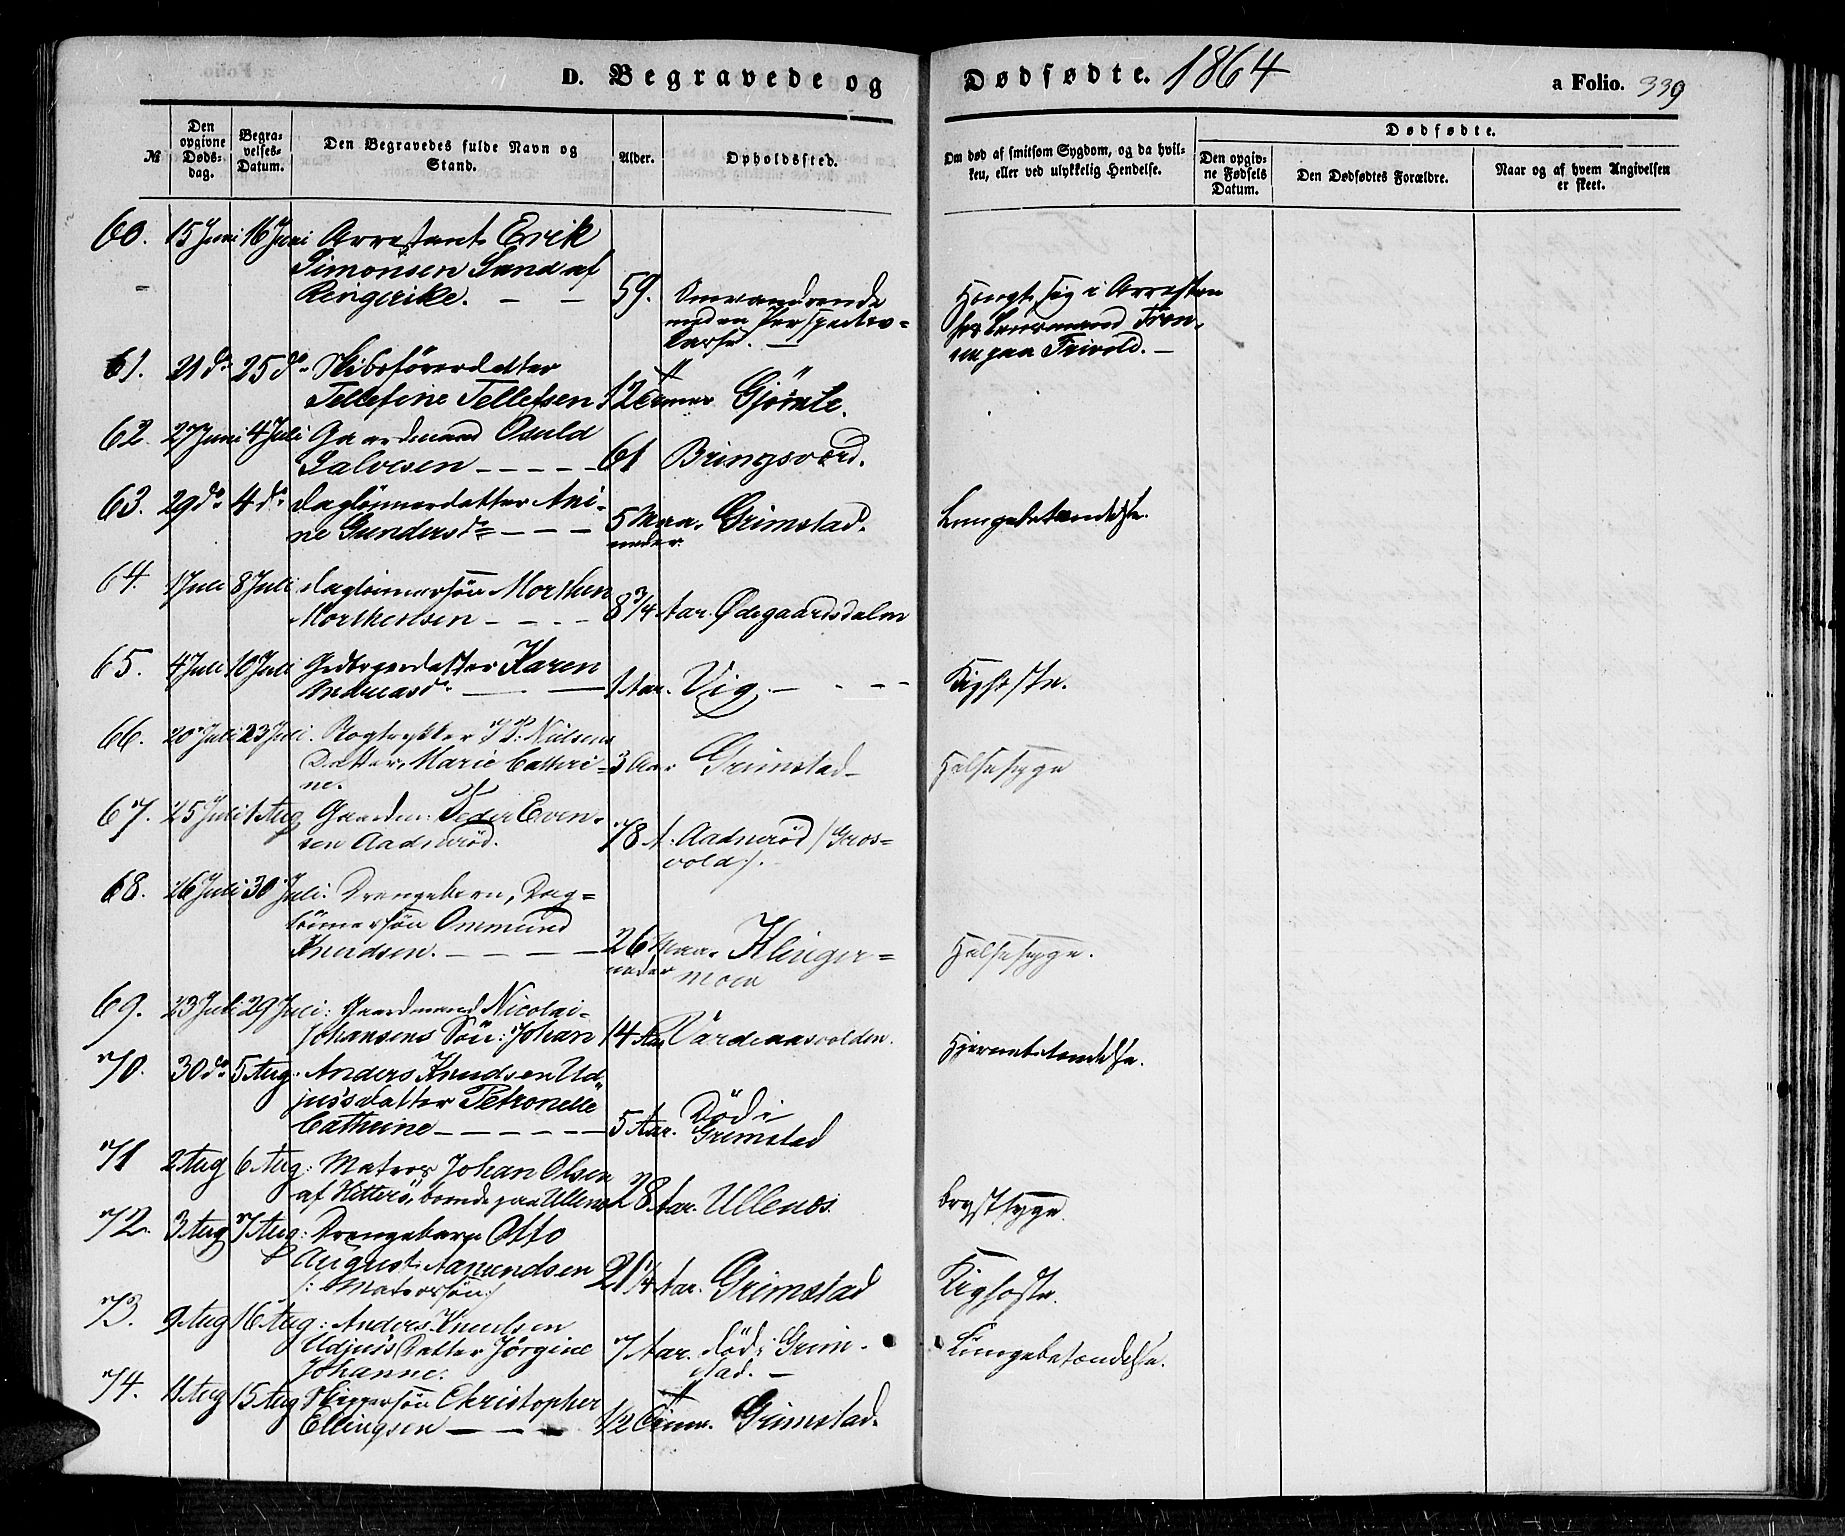 D. Begravede og Dødfødte. 1864
a Folio. 339
№
Den opgivne Døds-dag.
Begra-velses-Datum.
Den Begravedes fulde Navn og Stand.
Alder.
Opholdssted.
Om død af smitsom Sygdom, og da hvil-
ken, eller ved ulykkelig Hendelse.
Dødfødte.
Den opgiv-ne Fødsels Datum.
Den Dødfødtes Forældre.
Naar og af hvem Angivelsen er skeet.
60. 15 Juni 16 Juni Arrestant Erik
Simonsen Sand af
Ringerike. — — 59. Omvandrende
med en Perspectiv-
kasse. —
Hængt sig i Arresten
hos Lensmand
paa Frivold. —
61. 21 do 25 do Skibsførerdatter
Tellefine Tellefsen 12 Timer Gjømle.
62. 27 Juni 4 Juli Gaardmand Osuld
Salvesen — — — — 61 Bringsværd.
63. 29 do 4 do Daglönnerdatter Ani-
ne Gundersd. — — — 5 Maa-
neder. Grimstad. Lungebetændelse.
64. 1 Juli 8 Juli Daglönnersön Morthen
Morthensen — — — 8 3/4 Aar. Ødegaardsdalen
65. 4 Juli 10 Juli Karen
Andreasd. — — 1 Aar. Vig. — - - - Kighoste.
66. 20 Juli 23 Juli. Bogtrykker J. P. Nielsens
Datter, Marie Cathri-
ne. 3 Aar Grimstad — Halsesyge
67. 25 Juli 1 Aug Gaardm: Peder Even-
sen Aadneröd. 78 A. Aadneröd /: Gros-
vold :/. —
68. 26 Juli 30 Juli: Drengebarn, Dag-
lönnersön Ommund
Knudsen. — — — — 26 Maa-
neder Klinger-
moen Halsesyge.
69. 23 Juli 29 Juli: Gaardmand Nicolai
Johansens Sön: Johan 14 Aar Vardeaasvolden. Hjernebetændelse.
70. 30 do 5 Aug. Anders Knudsen Ud-
jus's Datter Petronelle
Cathrine — — — — — 5 Aar. Död i
Grimstad
71 2 Aug 6 Aug: Matros Johan Olsen
af Hitterö, boende paa Ullenæs 28 Aar. Ullenæs. Brystsyge.
72. 3 Aug 7 Aug: Drengebarn Otto
August Aamundsen
/: Matrossön :/ 2 1/4 Aar. Grimstad Kighoste.
73. 9 Aug 16 Aug: Anders Knudsen
Udjus's Datter Jörgine
Johanne: 7 Aar. död i Grim-
stad. — Lungebetændelse.
74. 11 Aug 15 Aug Skippersön Christopher
Ellingsen — — — 1/2 Time. Grimstad.